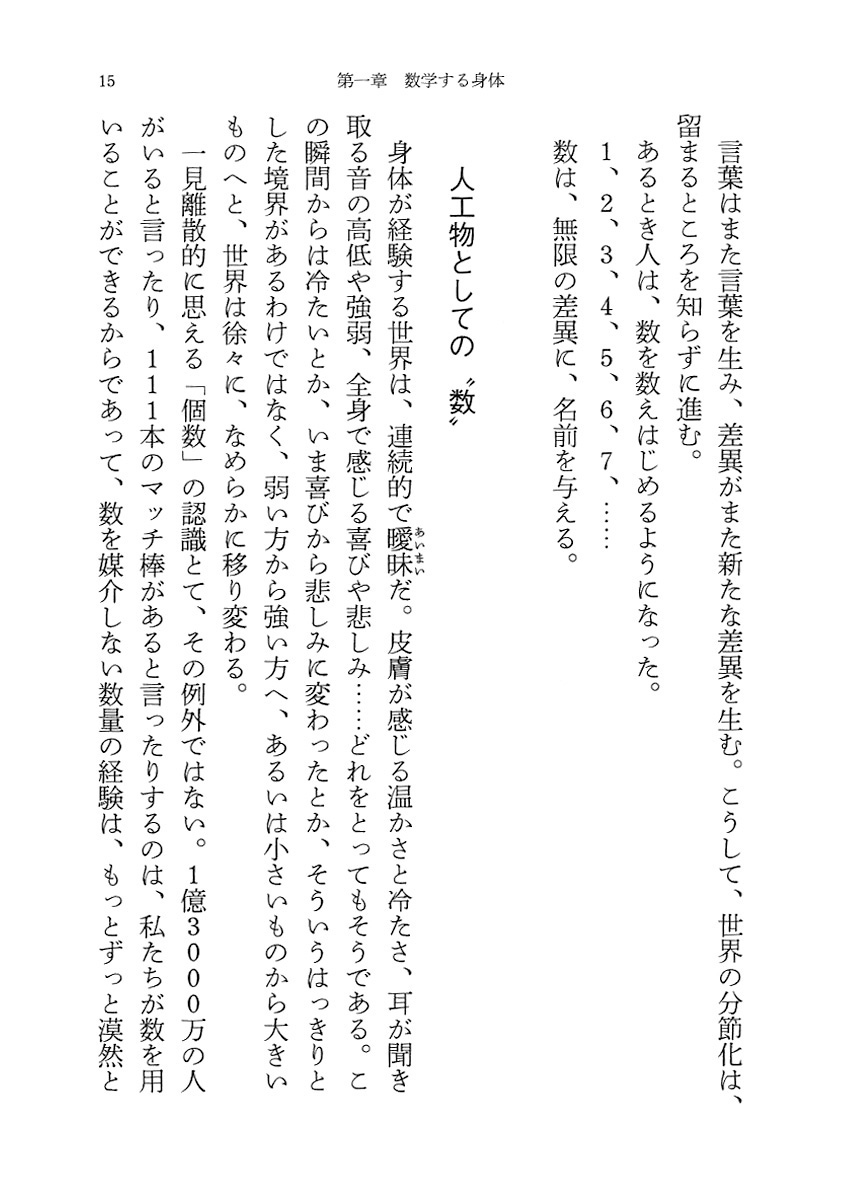 15
第一章　数学する身体
言葉はまた言葉を生み、差異がまた新たな差異を生む。こうして、世界の分節化は、
留まるところを知らずに進む。
あるとき人は、数を数えはじめるようになった。
1、2、3、4、5、6、7、……
数は、無限の差異に、名前を与える。
人工物としての〝数〟
身体が経験する世界は、連続的で曖昧だ。皮膚が感じる温かさと冷たさ、耳が聞き
あいまい
取る音の高低や強弱、全身で感じる喜びや悲しみ……どれをとってもそうである。こ
の瞬間からは冷たいとか、いま喜びから悲しみに変わったとか、そういうはっきりと
した境界があるわけではなく、弱い方から強い方へ、あるいは小さいものから大きい
ものへと、世界は徐々に、なめらかに移り変わる。
一見離散的に思える「個数」の認識とて、その例外ではない。1億3000万の人
がいると言ったり、111本のマッチ棒があると言ったりするのは、私たちが数を用
いることができるからであって、数を媒介しない数量の経験は、もっとずっと漠然と